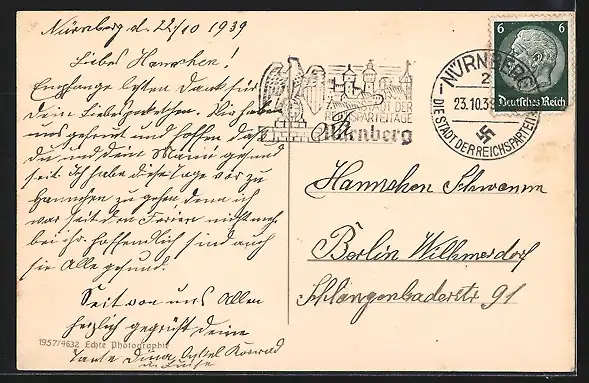 Nürnberg d. 22/10 1939
Liebes Hannchen!
Empfange besten Dank für
dein Liebes Paketchen. Wir haben
uns gefreut und hoffen daß
du und dein Mann gesund
seit. Ich habe diese Tage vor zu
Hannchen zu gehen denn ich
war seit den Ferien nicht mehr
bei ihr. Hoffendlich sind auch
sie Alle gesund.
Seit von uns Allen
herzlich gegrüßt deine
Tante Onkel Konrad
u. Luise
1957/4632 Echte Photographie
STADT DER
REICHSPARTEITAGE
Nürnberg
NÜRNBERG
2
23.10.39
DIE STADT DER REICHSPARTEITAGE
6 6
Deutsches Reich
Hannchen Schwemm
Berlin Wilhmersdorf
Schlangenbaderstr 91